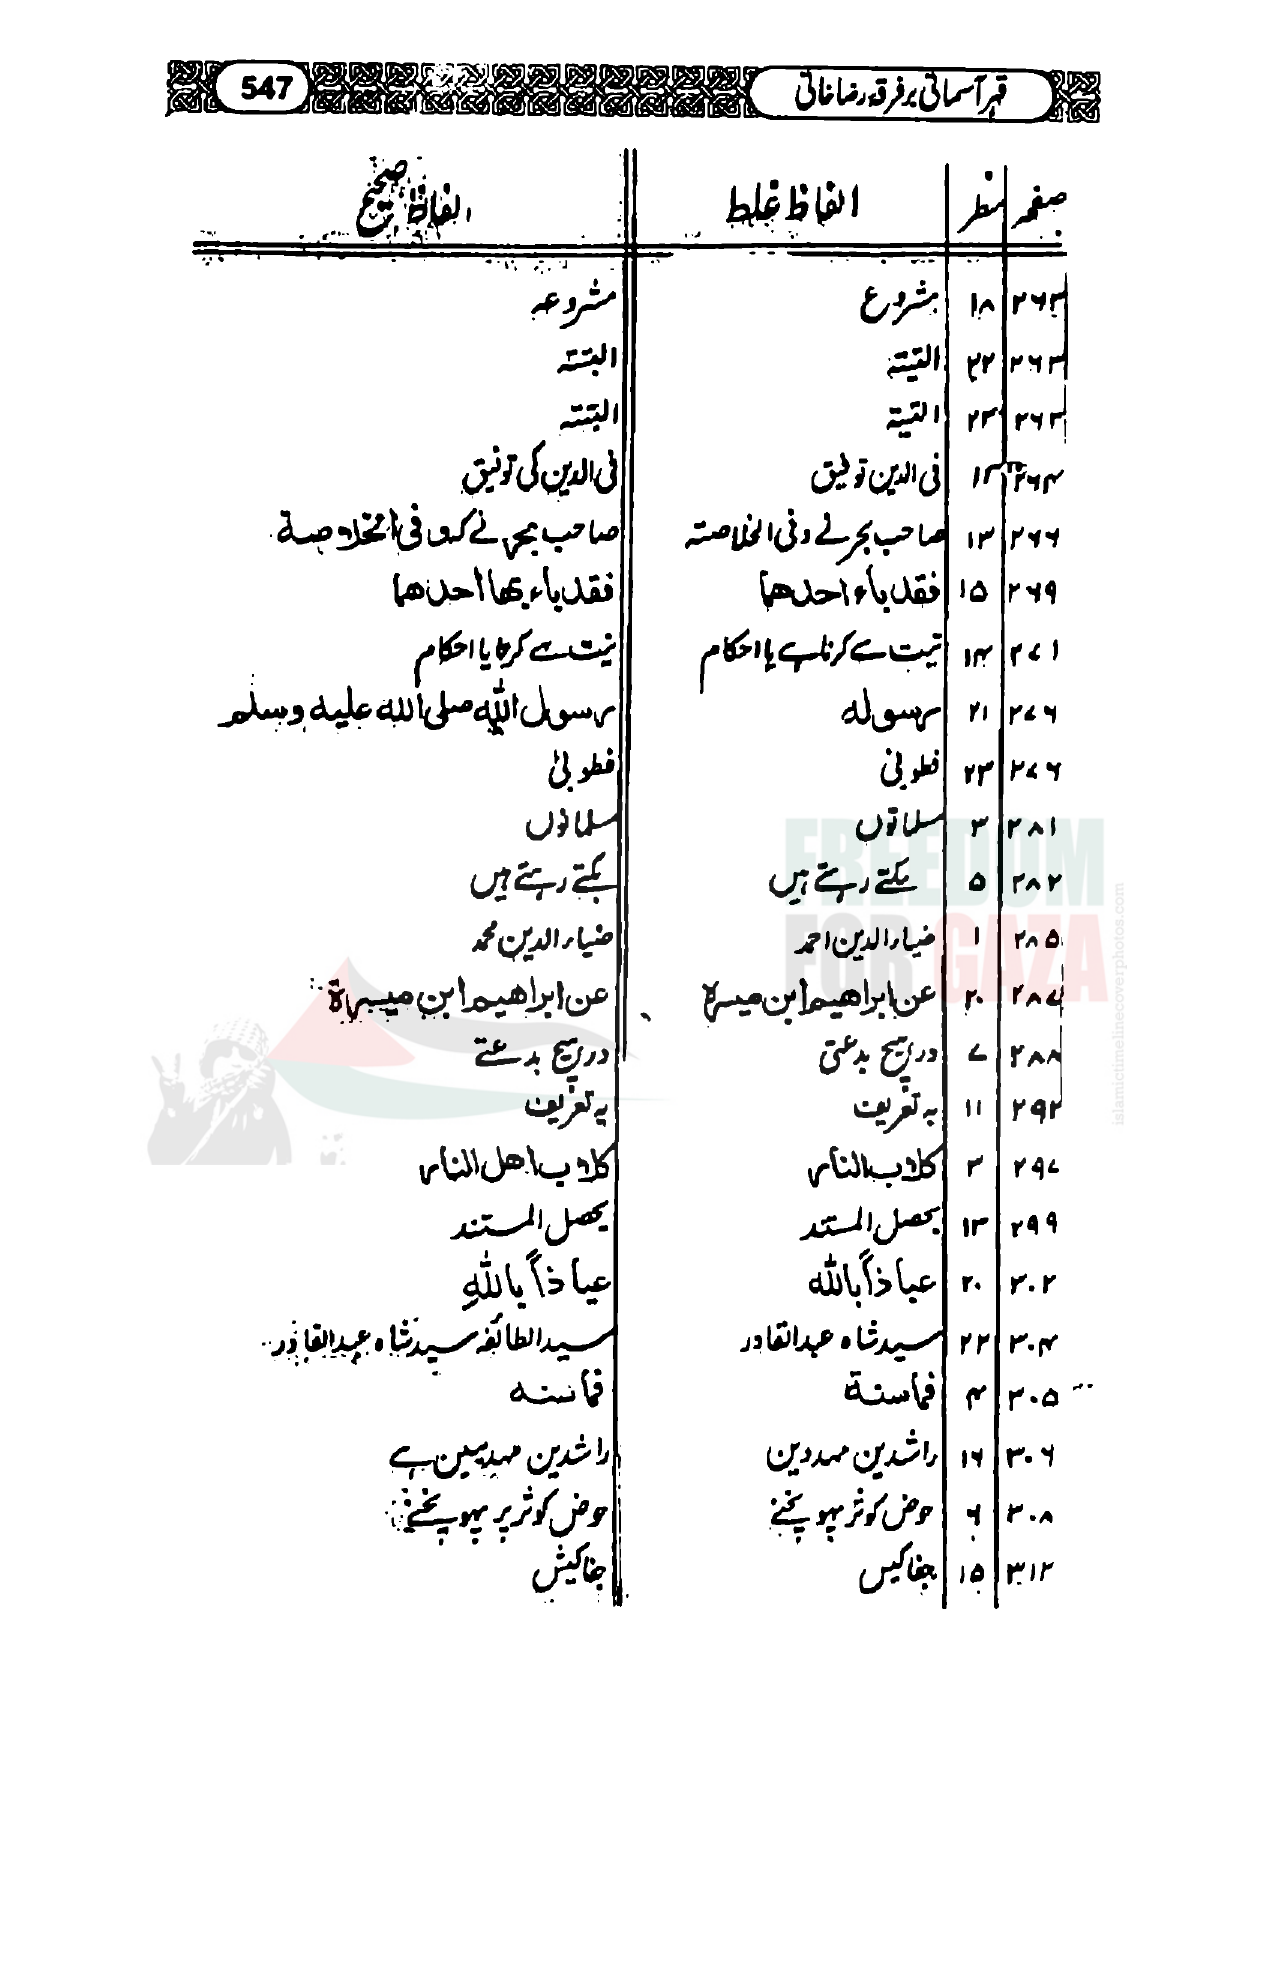 547 قہر آسمانی بر فرقہ رضا خانی
صفحہ سطر الفاظ غلط الفاظ صحیح
۲۶۳ ۱۸ مشروع مشروعہ
۲۶۳ ۲۲ التیتہ البتتہ
۲۶۳ ۲۳ التیتہ البتتہ
۲۶۴ ۱۳ فی الدین توفیق فی الدین کی توفیق
۲۶۶ ۱۳ صاحب بحر نے وفی الخلاصتہ صاحب بحر نے کہ وفی الخلاصة
۲۶۹ ۱۵ فقد باء احدھما فقد باء بھا احدھما
۲۷۱ ۱۴ نیت سے کرنا ہے یا احکام نیت سے کرنا یا احکام
۲۷۶ ۲۱ رسولہ رسول اللہ صلی اللہ علیہ وسلم
۲۷۶ ۲۳ فطوبیٰ
۲۸۱ ۳ مسلمانوں
۲۸۲ ۵ بکتے رہتے ہیں
۲۸۵ ۱ ضیاء الدین احمد ضیاء الدین محمد
۲۸۷ ۲۰ عن ابراھیم ابن میسرہ عن ابراھیم ابن میسرة
۲۸۸ ۷ در ترویج بدعتی در ترویج بدعتے
۲۹۲ ۱۱ یہ تعریف بہ تعریف
۲۹۷ ۳ کلاب النار کلاب اھل النار
۲۹۹ ۱۳ یحصل المستند یحصل المستند
۳۰۲ ۲۰ عیاذاً باللہ عیاذاً باللہِ
۳۰۴ ۲۲ سید شاہ عبدالقادر سید الطائفہ سید شاہ عبدالقادر
۳۰۵ ۴ فما سنة فما سنہ
۳۰۶ ۱۶ راشدین مہدیین ہے
۳۰۸ ۶ حوض کوثر پہونچنے حوض کوثر پر پہونچنے
۳۱۲ ۱۵ جفاکیس جفاکیش
FREEDOM
FOR GAZA
islamictimelinecoverphotos.com